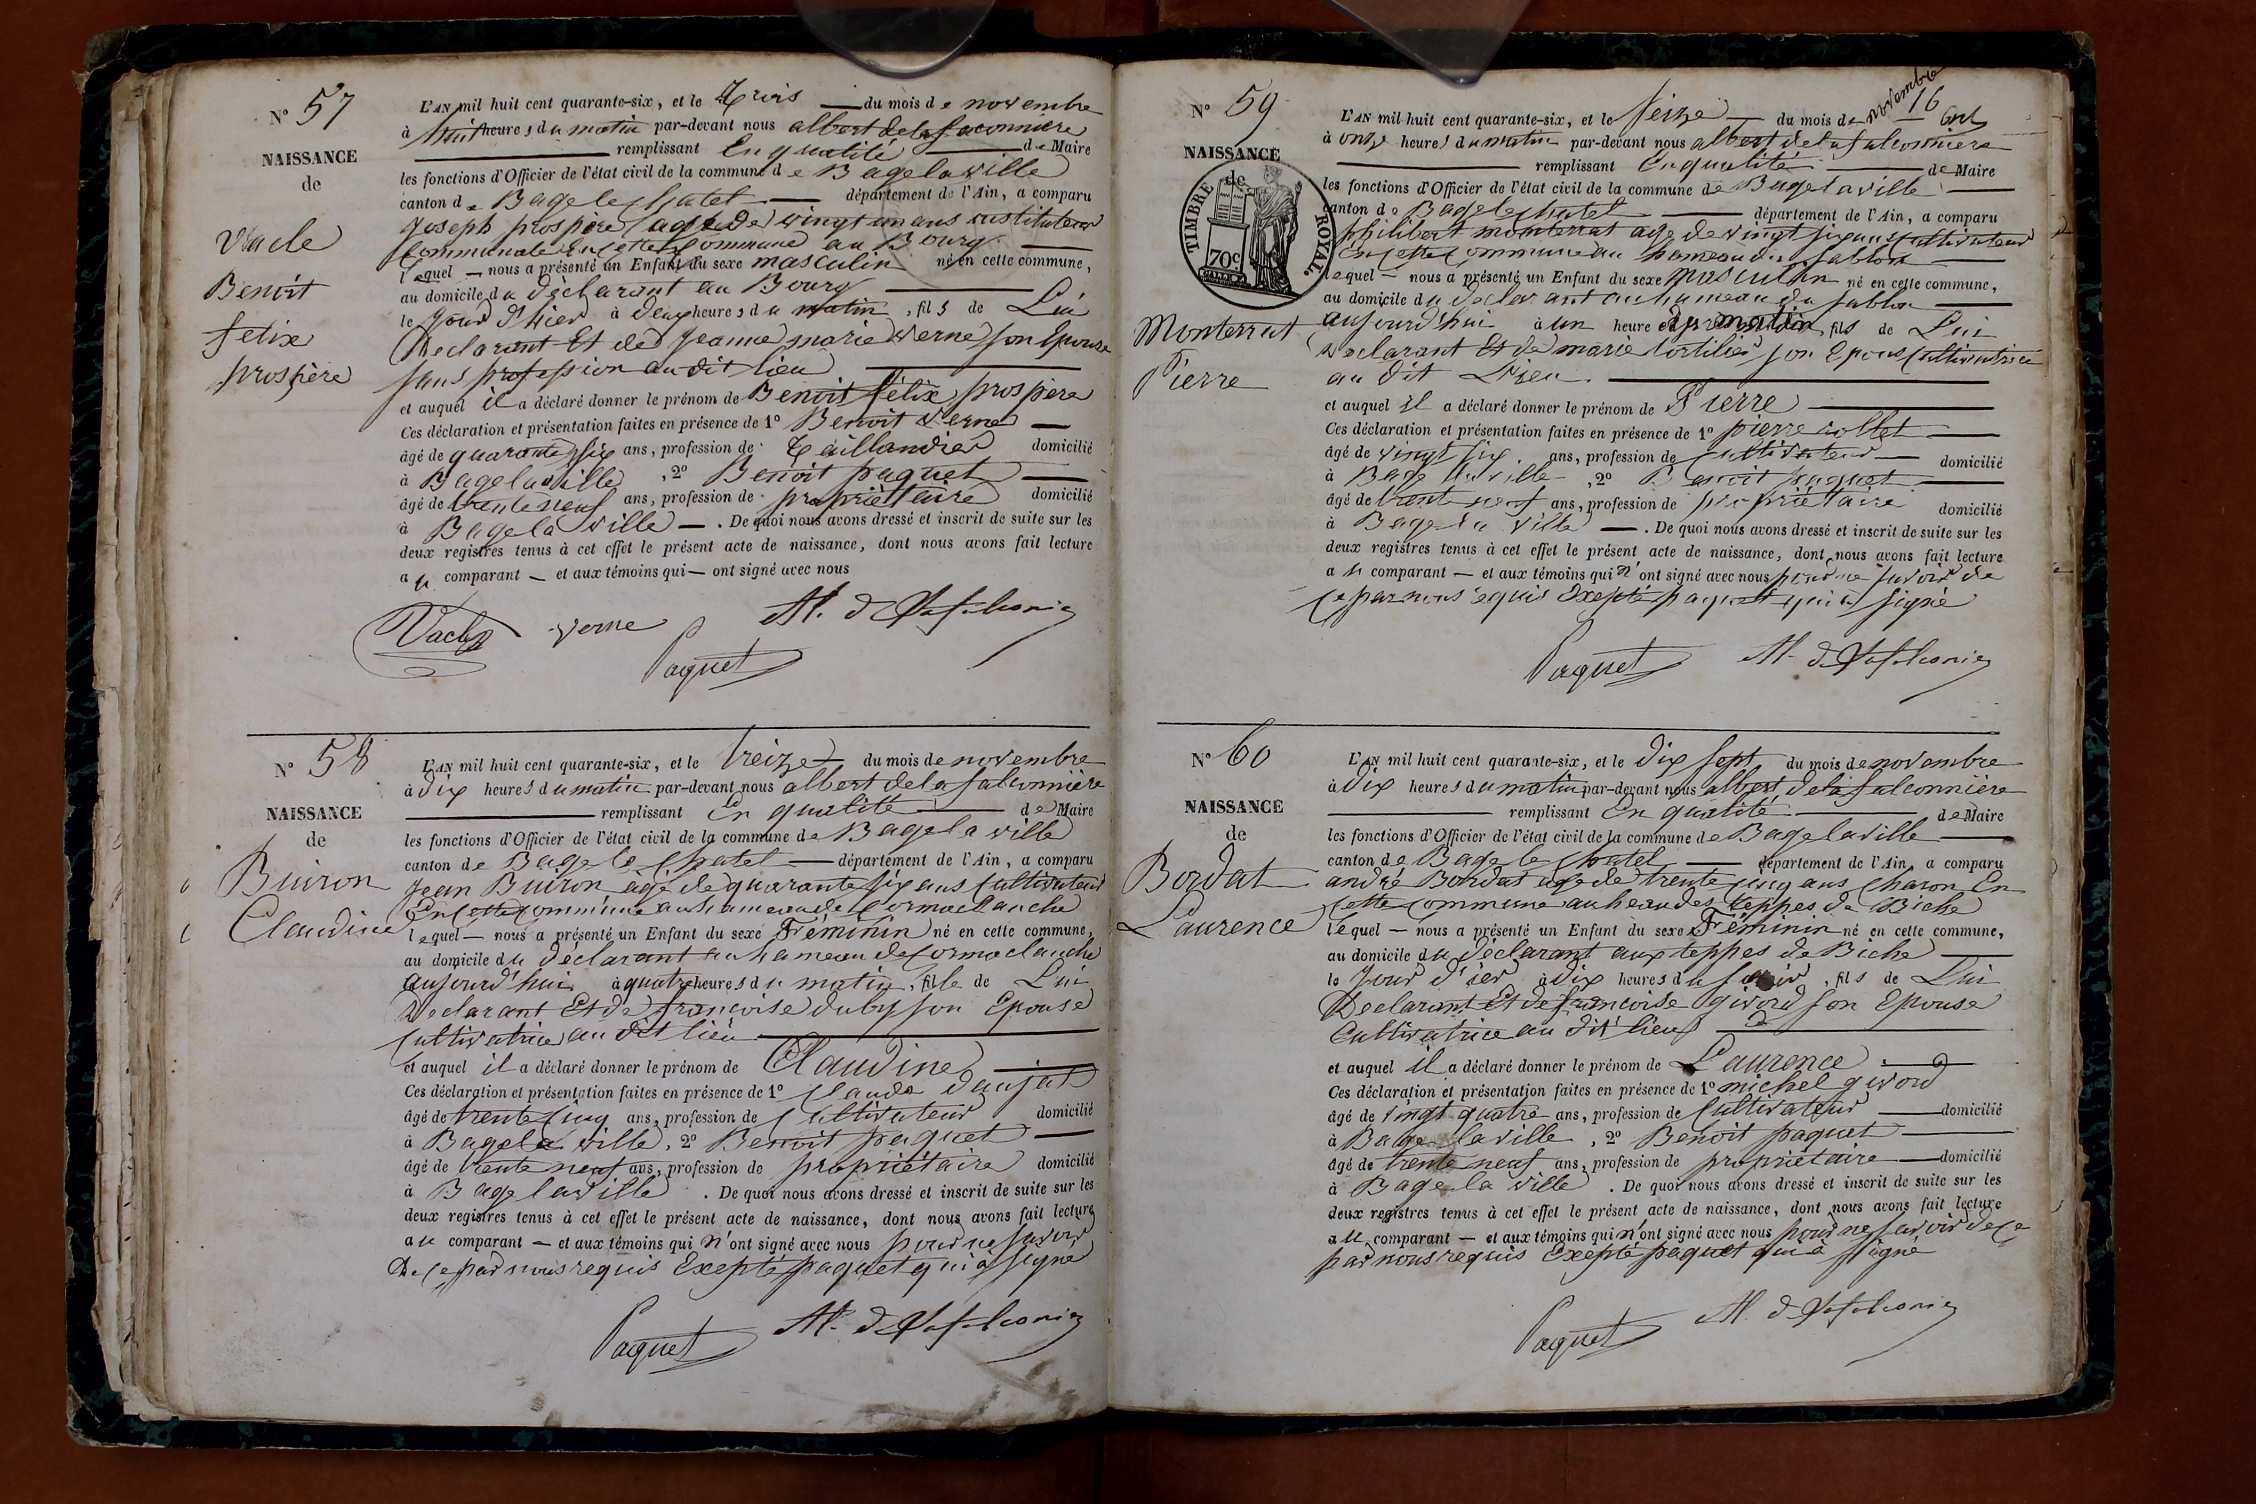 N° 57
NAISSANCE
de
Vacle
Benoit
felix
prospère
L'AN mil huit cent quarante-six, et le Trois du mois de novembre
à huit heures du matin par-devant nous albert de la falconnière
remplissant En qualité de Maire
les fonctions d'Officier de l'état civil de la commune de Bagelaville
canton de Bage le chatel département de l'Ain, a comparu
Joseph prospère agé de vingt un ans instituteur
communale En cette commune au Bourg
lequel nous a présenté un Enfant du sexe masculin né en cette commune,
au domicile du déclarant au Bourg
le jour d'hier à deux heures du matin, fils de Lui
Declarant Et de Jeanne marie Verne son Epouse
sans profession au dit lieu
et auquel il a déclaré donner le prénom de Benoit félix prospère
Ces déclaration et présentation faites en présence de 1° Benoit Verne
âgé de quarante six ans, profession de Taillandier domicilié
à Bagelaville, 2° Benoit paquet
âgé de trente neuf ans, profession de propriétaire domicilié
à Bagela ville. De quoi nous avons dressé et inscrit de suite sur les
deux registres tenus à cet effet le présent acte de naissance, dont nous avons fait lecture
au comparant et aux témoins qui ont signé avec nous
Vacle verne Paquet Al. de Lafalconnière
N° 58
NAISSANCE
de
Buiron
Claudine
L'AN mil huit cent quarante-six, et le treize du mois de novembre
à dix heures du matin par-devant nous albert de la falconnière
remplissant En qualité de Maire
les fonctions d'Officier de l'état civil de la commune de Bagela ville
canton de Bage le chatel département de l'Ain, a comparu
Jean Buiron agé de quarante six ans cultivateur
En cette commune au hameau de Cormaclanche
lequel nous a présenté un Enfant du sexe Féminin né en cette commune,
au domicile du déclarant au hameau de Cormaclanche
aujourd'hui à quatre heures du matin, fille de Lui
Declarant Et de françoise dubysson Epouse
cultivatrice au dit lieu
et auquel il a déclaré donner le prénom de Claudine
Ces déclaration et présentation faites en présence de 1° Claude daujat
âgé de trente cinq ans, profession de cultivateur domicilié
à Bagela ville, 2° Benoit paquet
âgé de trente neuf ans, profession de propriétaire domicilié
à Bagelaville. De quoi nous avons dressé et inscrit de suite sur les
deux registres tenus à cet effet le présent acte de naissance, dont nous avons fait lecture
au comparant et aux témoins qui n'ont signé avec nous pour ne savoir
de ce par nous requis Exepté paquet qui à signé
Paquet Al. de Lafalconnière
N° 59
NAISSANCE
de
TIMBRE ROYAL.
70c
Monterrat
Pierre
novembre
16
L'AN mil huit cent quarante-six, et le seize du mois de
à onze heures du matin par-devant nous albert de la falconnière
remplissant En qualité de Maire
les fonctions d'Officier de l'état civil de la commune de Bagelaville
canton de Bage le chatel département de l'Ain, a comparu
philibert monterrat agé de vingt six ans cultivateur
En cette commune au hameau du sablon
lequel nous a présenté un Enfant du sexe masculin né en cette commune,
au domicile du declarant au hameau du sablon
aujourd'hui à un heure du matin, fils de Lui
Declarant Et de marie tortilier son Epouse cultivatrice
au dit Lieu
et auquel il a déclaré donner le prénom de Pierre
Ces déclaration et présentation faites en présence de 1° pierre rollet
âgé de vingt six ans, profession de cultivateur domicilié
à Bage la ville, 2° Benoit paquet
âgé de trente neuf ans, profession de propriétaire domicilié
à Bage la ville. De quoi nous avons dressé et inscrit de suite sur les
deux registres tenus à cet effet le présent acte de naissance, dont nous avons fait lecture
au comparant et aux témoins qui n'ont signé avec nous pour ne savoir de
ce par nous requis Exepté paquet qui à signé
Paquet Al. de Lafalconnière
N° 60
NAISSANCE
de
Bordat
Laurence
L'AN mil huit cent quarante-six, et le dix sept du mois de novembre
à dix heures du matin par-devant nous albert de la falconnière
remplissant En qualité de Maire
les fonctions d'Officier de l'état civil de la commune de Bagelaville
canton de Bage le chatel département de l'Ain, a comparu
andré Bordat agé de trente cinq ans charon En
cette commune au heau des teppes de Biche
lequel nous a présenté un Enfant du sexe Féminin né en cette commune,
au domicile du déclarant aux teppes de Biche
le jour d'ier à dix heures du soir, fils de Lui
Declarant Et de francoise givord son Epouse
Cultivatrice au dit lieu
et auquel il a déclaré donner le prénom de Laurence
Ces déclaration et présentation faites en présence de 1° michel givord
âgé de vingt quatre ans, profession de cultivateur domicilié
à Bage laville, 2° Benoit paquet
âgé de trente neuf ans, profession de propriétaire domicilié
à Bage la ville. De quoi nous avons dressé et inscrit de suite sur les
deux registres tenus à cet effet le présent acte de naissance, dont nous avons fait lecture
au comparant et aux témoins qui n'ont signé avec nous pour ne savoir de ce
par nous requis Exepté paquet qui à signé
Paquet Al. de Lafalconnière